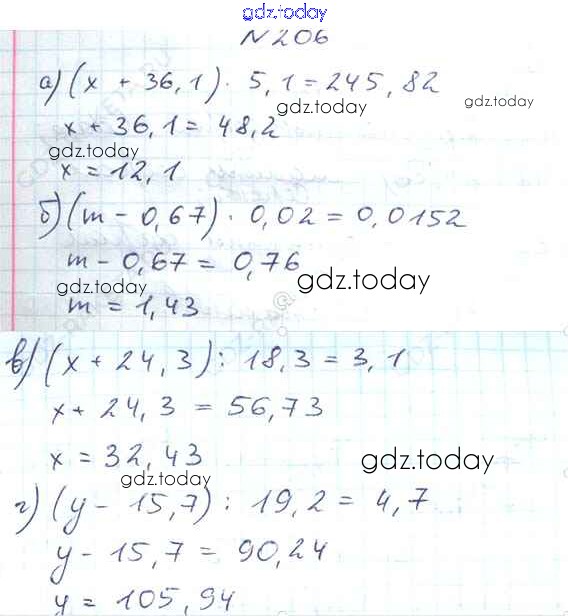 gdz.today
№ 206
а) (x + 36,1) · 5,1 = 245,82
gdz.today gdz.today
x + 36,1 = 48,2
gdz.today
x = 12,1
б) (m - 0,67) · 0,02 = 0,0152
m - 0,67 = 0,76
gdz.today gdz.today
m = 1,43
в) (x + 24,3) : 18,3 = 3,1
x + 24,3 = 56,73
x = 32,43
gdz.today
gdz.today
г) (y - 15,7) : 19,2 = 4,7
y - 15,7 = 90,24
y = 105,94